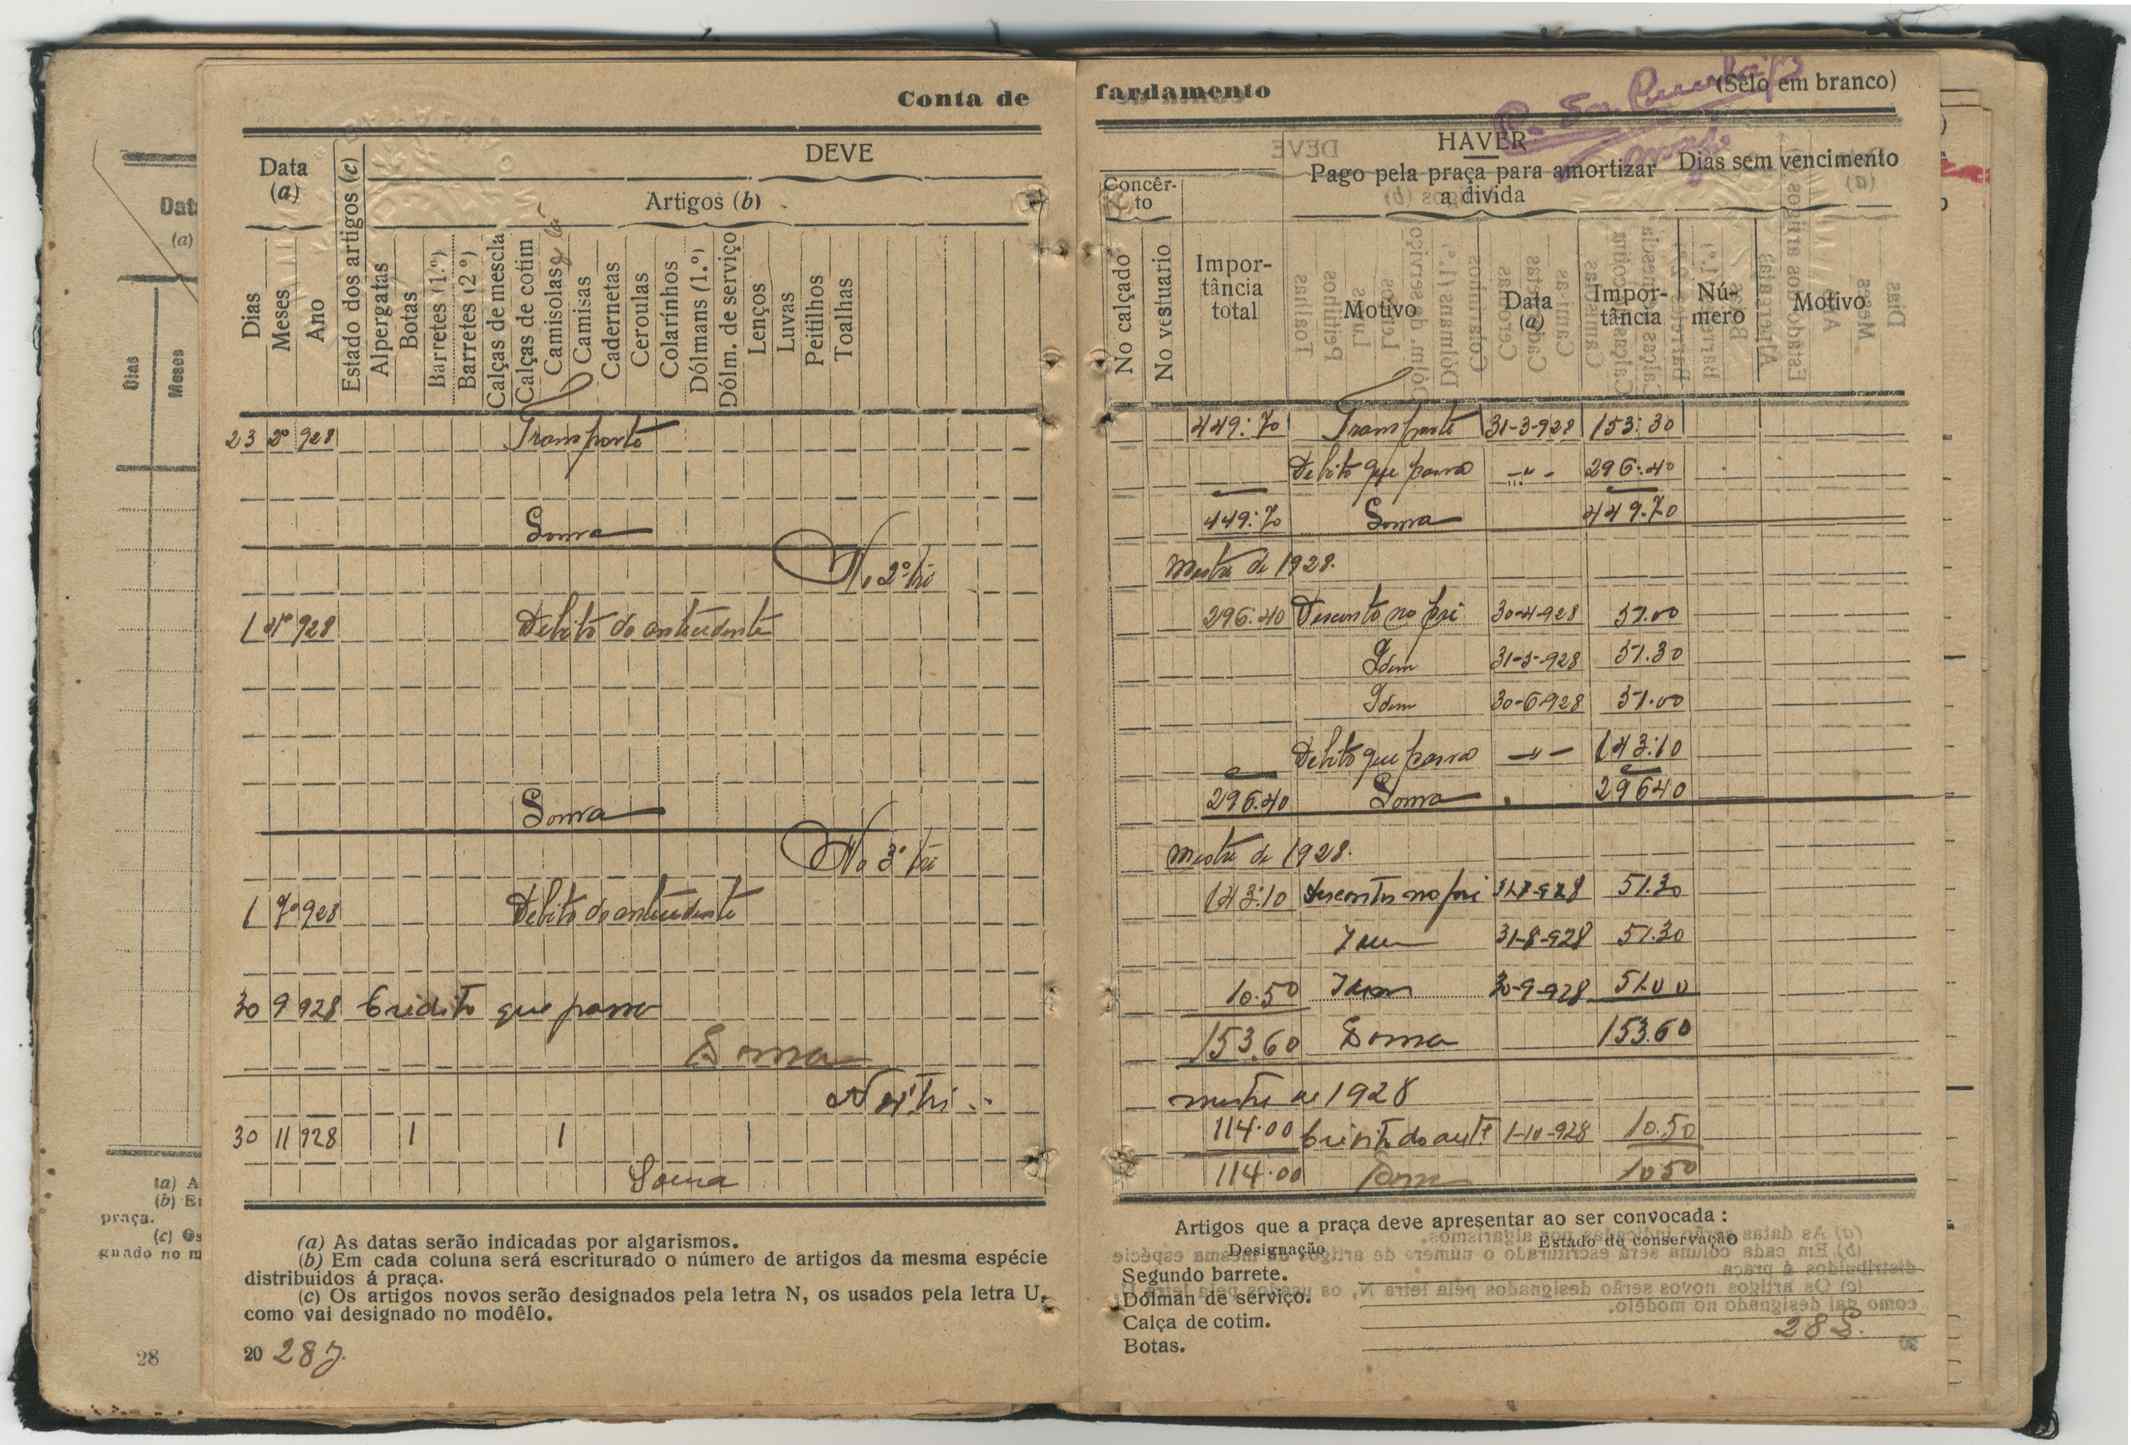 Conta de fardamento (Sêlo em branco)
Data (a)
DEVE
Artigos (b)
Dias
Meses
Ano
Estado dos artigos (c)
Alpergatas
Botas
Barretes (1.º)
Barretes (2.º)
Calças de mescla
Calças de cotim
Camisolas
Camisas
Cadernetas
Ceroulas
Colarinhos
Dólmans (1.º)
Dólm. de serviço
Lenços
Luvas
Peitilhos
Toalhas
23 2º 928 Transporte
Soma
No 2º tri
1 4º 928 Debito do antecedente
Soma
No 3º tri
1 7º 928 Debito do antecedente
30 9 928 Credito que passa
Soma
No 4º tri
30 11 928 1 1
Soma
(a) As datas serão indicadas por algarismos.
(b) Em cada coluna será escriturado o número de artigos da mesma espécie
distribuidos á praça.
(c) Os artigos novos serão designados pela letra N, os usados pela letra U,
como vai designado no modêlo.
20 287
HAVER
Concêrto
Pago pela praça para amortizar
a divida
Dias sem vencimento
No calçado
No vestuario
Importância total
Motivo
Data (a)
Importância
Número
Motivo
449:70 Transporte 31-3-928 153:30
Debito que passa -"- 296:40
449:70 Soma 449.70
mestre de 1928.
296:40 Desconto no pré 30-4-928 51.00
Idem 31-5-928 51.30
Idem 30-6-928 51.00
Debito que passa -"- 143:10
296.40 Soma 29640
mestre de 1928.
143:10 Descontos no pré 31-7-928 51.30
Idem 31-8-928 51.30
10.50 Idem 30-9-928 51.00
153.60 Soma 153.60
mestre de 1928
114.00 Credito do antte 1-10-928 10.50
114.00 Soma 10.50
Artigos que a praça deve apresentar ao ser convocada :
Designação Estado de conservação
Segundo barrete.
Dolman de serviço.
Calça de cotim.
Botas.
288.
Data
(a)
Dias
Meses
(a) A
(b) E
praça.
(c) Os
gnado no m
28